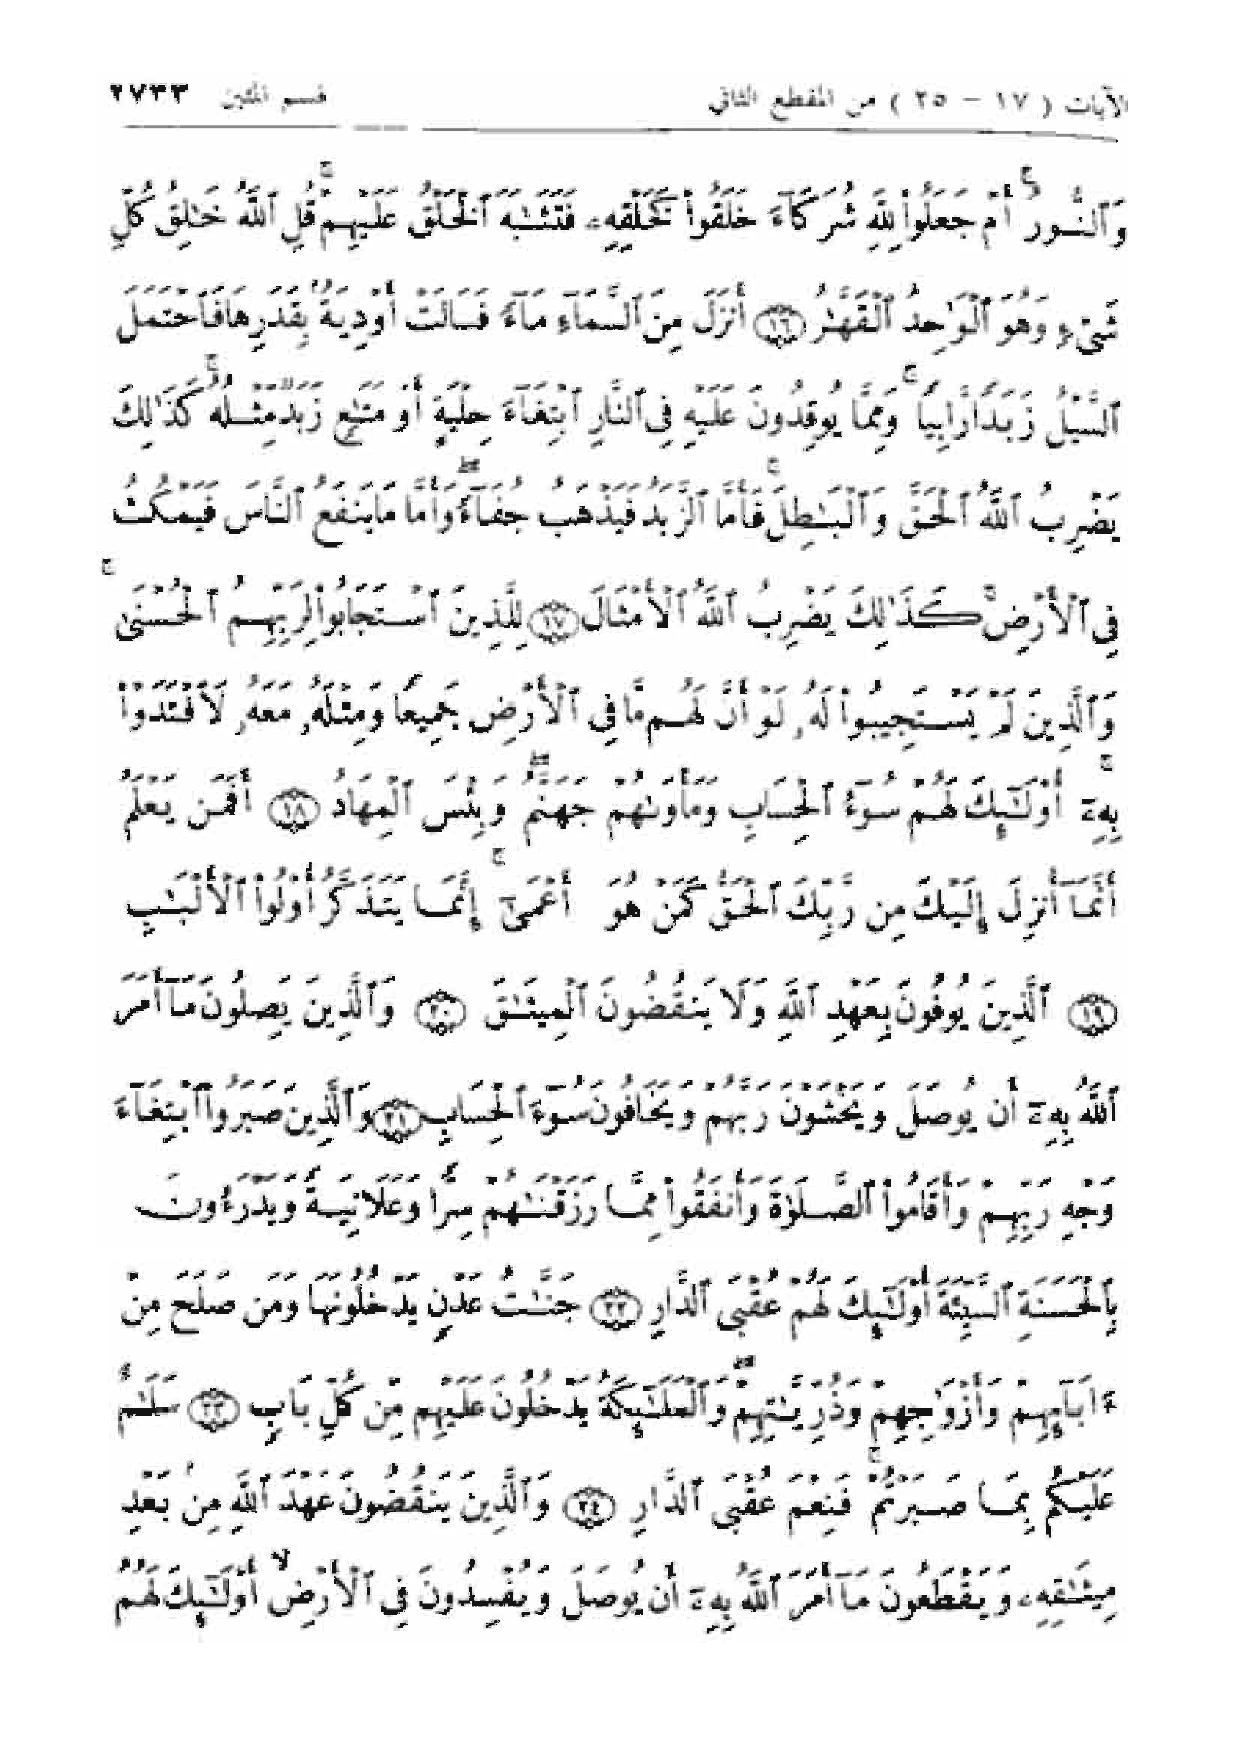 الآيات ( ١٧ - ٢٥ ) من المقطع الثاني قسم المئين ٢٧٣٣
وَٱلنُّورُ ۗ أَمْ جَعَلُوا۟ لِلَّهِ شُرَكَآءَ خَلَقُوا۟ كَخَلْقِهِۦ فَتَشَٰبَهَ ٱلْخَلْقُ عَلَيْهِمْ ۚ قُلِ ٱللَّهُ خَٰلِقُ كُلِّ
شَىْءٍ وَهُوَ ٱلْوَٰحِدُ ٱلْقَهَّٰرُ ۝١٦ أَنزَلَ مِنَ ٱلسَّمَآءِ مَآءً فَسَالَتْ أَوْدِيَةٌۢ بِقَدَرِهَا فَٱحْتَمَلَ
ٱلسَّيْلُ زَبَدًا رَّابِيًا ۚ وَمِمَّا يُوقِدُونَ عَلَيْهِ فِى ٱلنَّارِ ٱبْتِغَآءَ حِلْيَةٍ أَوْ مَتَٰعٍ زَبَدٌ مِّثْلُهُۥ ۚ كَذَٰلِكَ
يَضْرِبُ ٱللَّهُ ٱلْحَقَّ وَٱلْبَٰطِلَ ۚ فَأَمَّا ٱلزَّبَدُ فَيَذْهَبُ جُفَآءً ۖ وَأَمَّا مَا يَنفَعُ ٱلنَّاسَ فَيَمْكُثُ
فِى ٱلْأَرْضِ ۚ كَذَٰلِكَ يَضْرِبُ ٱللَّهُ ٱلْأَمْثَالَ ۝١٧ لِلَّذِينَ ٱسْتَجَابُوا۟ لِرَبِّهِمُ ٱلْحُسْنَىٰ ۚ
وَٱلَّذِينَ لَمْ يَسْتَجِيبُوا۟ لَهُۥ لَوْ أَنَّ لَهُم مَّا فِى ٱلْأَرْضِ جَمِيعًا وَمِثْلَهُۥ مَعَهُۥ لَٱفْتَدَوْا۟
بِهِۦٓ ۚ أُو۟لَٰٓئِكَ لَهُمْ سُوٓءُ ٱلْحِسَابِ وَمَأْوَىٰهُمْ جَهَنَّمُ ۖ وَبِئْسَ ٱلْمِهَادُ ۝١٨ أَفَمَن يَعْلَمُ
أَنَّمَآ أُنزِلَ إِلَيْكَ مِن رَّبِّكَ ٱلْحَقُّ كَمَنْ هُوَ أَعْمَىٰٓ ۚ إِنَّمَا يَتَذَكَّرُ أُو۟لُوا۟ ٱلْأَلْبَٰبِ
۝١٩ ٱلَّذِينَ يُوفُونَ بِعَهْدِ ٱللَّهِ وَلَا يَنقُضُونَ ٱلْمِيثَٰقَ ۝٢٠ وَٱلَّذِينَ يَصِلُونَ مَآ أَمَرَ
ٱللَّهُ بِهِۦٓ أَن يُوصَلَ وَيَخْشَوْنَ رَبَّهُمْ وَيَخَافُونَ سُوٓءَ ٱلْحِسَابِ ۝٢١ وَٱلَّذِينَ صَبَرُوا۟ ٱبْتِغَآءَ
وَجْهِ رَبِّهِمْ وَأَقَامُوا۟ ٱلصَّلَوٰةَ وَأَنفَقُوا۟ مِمَّا رَزَقْنَٰهُمْ سِرًّا وَعَلَانِيَةً وَيَدْرَءُونَ
بِٱلْحَسَنَةِ ٱلسَّيِّئَةَ أُو۟لَٰٓئِكَ لَهُمْ عُقْبَى ٱلدَّارِ ۝٢٢ جَنَّٰتُ عَدْنٍ يَدْخُلُونَهَا وَمَن صَلَحَ مِنْ
ءَابَآئِهِمْ وَأَزْوَٰجِهِمْ وَذُرِّيَّٰتِهِمْ ۖ وَٱلْمَلَٰٓئِكَةُ يَدْخُلُونَ عَلَيْهِم مِّن كُلِّ بَابٍ ۝٢٣ سَلَٰمٌ
عَلَيْكُم بِمَا صَبَرْتُمْ ۚ فَنِعْمَ عُقْبَى ٱلدَّارِ ۝٢٤ وَٱلَّذِينَ يَنقُضُونَ عَهْدَ ٱللَّهِ مِنۢ بَعْدِ
مِيثَٰقِهِۦ وَيَقْطَعُونَ مَآ أَمَرَ ٱللَّهُ بِهِۦٓ أَن يُوصَلَ وَيُفْسِدُونَ فِى ٱلْأَرْضِ ۙ أُو۟لَٰٓئِكَ لَهُمُ